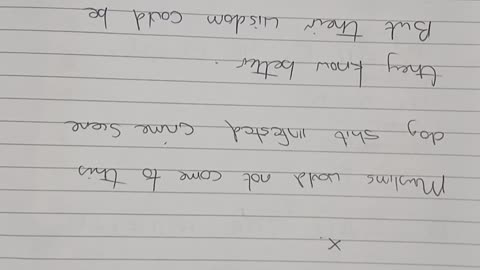 x.
Muslims would not come to this
dog shit infested crime Scene
they know better.
But their wisdom could be